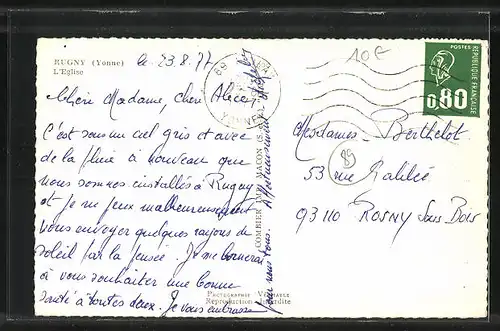 RUGNY (Yonne)
L'Eglise
le 23.8.77
Chère Madame, chère Alice,
C'est sous un ciel gris et avec
de la pluie à nouveau que
nous sommes installés à Rugny
et je ne peux malheureusement
vous envoyer quelques rayons de
soleil par la pensée. Je me bornerai
à vous souhaiter une bonne
santé à toutes deux. Je vous embrasse
pour nous tous. Affectueusement
COMBIER IMP. MACON (S.-
Photographie Véritable
Reproduction Interdite
10F
POSTES
REPUBLIQUE FRANÇAISE
0,80
89
YONNE
95
Mesdames Berthelot
53 rue Galilée
93110 Rosny Sous Bois